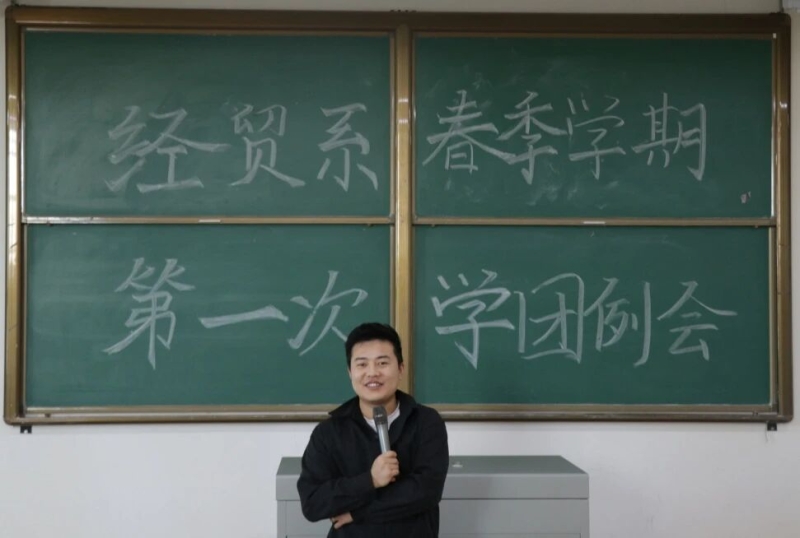 经贸系 春季学期
第一次 学团例会